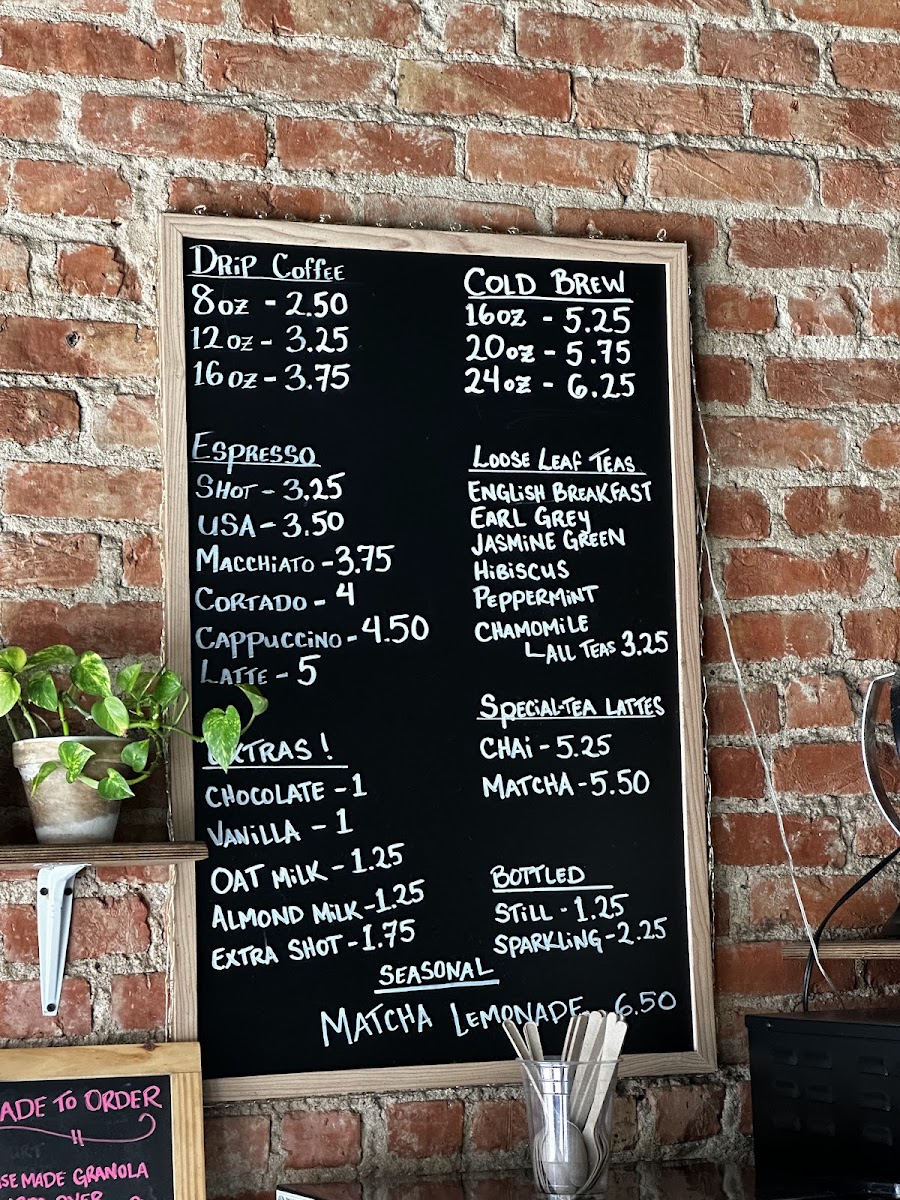 Drip Coffee
8oz - 2.50
12oz - 3.25
16oz - 3.75
Espresso
Shot - 3.25
USA - 3.50
Macchiato - 3.75
Cortado - 4
Cappuccino - 4.50
Latte - 5
Extras!
Chocolate - 1
Vanilla - 1
Oat Milk - 1.25
Almond Milk - 1.25
Extra Shot - 1.75
Cold Brew
16oz - 5.25
20oz - 5.75
24oz - 6.25
Loose Leaf Teas
English Breakfast
Earl Grey
Jasmine Green
Hibiscus
Peppermint
Chamomile
All Teas 3.25
Special-Tea Lattes
Chai - 5.25
Matcha - 5.50
Bottled
Still - 1.25
Sparkling - 2.25
Seasonal
Matcha Lemonade 6.50
ADE TO ORDER
SE MADE GRANOLA
OVER